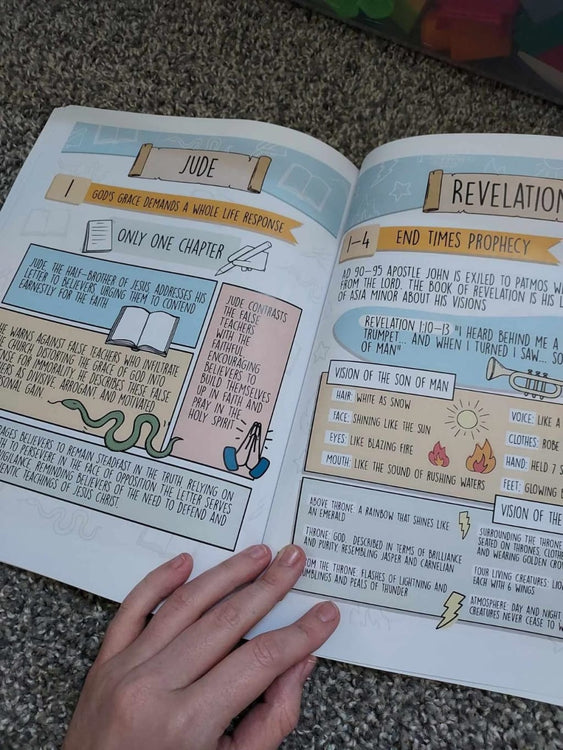 JUDE
1
GOD'S GRACE DEMANDS A WHOLE LIFE RESPONSE
ONLY ONE CHAPTER
JUDE, THE HALF-BROTHER OF JESUS ADDRESSES HIS
LETTER TO BELIEVERS URGING THEM TO CONTEND
EARNESTLY FOR THE FAITH
JUDE CONTRASTS
THE FALSE
TEACHERS
WITH THE
FAITHFUL,
ENCOURAGING
BELIEVERS TO
BUILD THEMSELVES
UP IN FAITH AND
PRAY IN THE
HOLY SPIRIT
HE WARNS AGAINST FALSE TEACHERS WHO INFILTRATE
THE CHURCH DISTORTING THE GRACE OF GOD INTO
FOR IMMORALITY. HE DESCRIBES THESE FALSE
AS DIVISIVE, ARROGANT AND MOTIVATED
GAIN
BELIEVERS TO REMAIN STEADFAST IN THE TRUTH RELYING ON
TO PERSEVERE IN THE FACE OF OPPOSITION. THE LETTER SERVES
REMINDING BELIEVERS OF THE NEED TO DEFEND AND
TEACHINGS OF JESUS CHRIST.
REVELATION
1-4
END TIMES PROPHECY
AD 90-95 APOSTLE JOHN IS EXILED TO PATMOS
FROM THE LORD. THE BOOK OF REVELATION IS HIS
OF ASIA MINOR ABOUT HIS VISIONS
REVELATION 1:10-13 "I HEARD BEHIND ME A
TRUMPET... AND WHEN I TURNED I SAW...
OF MAN"
VISION OF THE SON OF MAN
HAIR: WHITE AS SNOW
FACE: SHINING LIKE THE SUN
EYES: LIKE BLAZING FIRE
MOUTH: LIKE THE SOUND OF RUSHING WATERS
VOICE: LIKE A
CLOTHES: ROBE
HAND: HELD 7
FEET: GLOWING
VISION OF THE
ABOVE THRONE: A RAINBOW THAT SHINES LIKE
AN EMERALD
THRONE: GOD, DESCRIBED IN TERMS OF BRILLIANCE
AND PURITY, RESEMBLING JASPER AND CARNELIAN
FROM THE THRONE: FLASHES OF LIGHTNING AND
RUMBLINGS AND PEALS OF THUNDER
SURROUNDING THE THRONE
SEATED ON THRONES,
AND WEARING GOLDEN
FOUR LIVING CREATURES:
EACH WITH 6 WINGS
ATMOSPHERE: DAY AND NIGHT
CREATURES NEVER CEASE TO